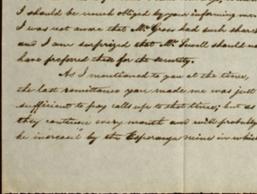 I should be much obliged by you informing me
I was not aware that Mr. Gross had such shares
and I am surprized that Mr. should not
have preferred them for the security.
As I mentioned to you at the time,
the last remittance you made me was just
sufficient to pay calls up to that time; but as
they continue every month and will probably
be increas'd by the Esperanza mine in which